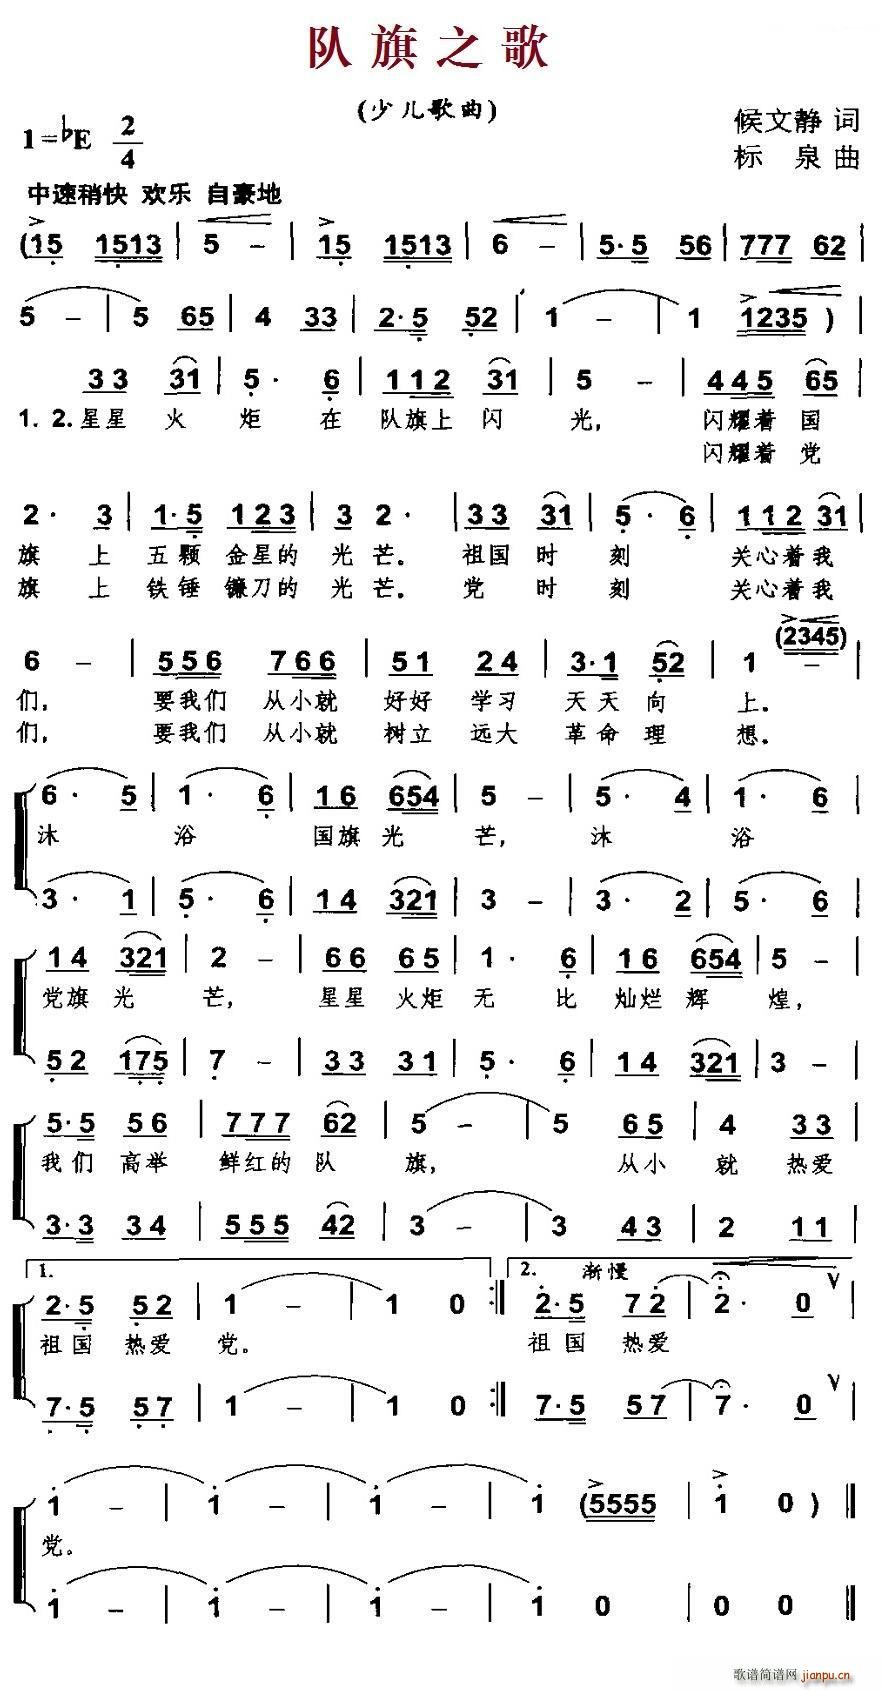 队旗之歌
(少儿歌曲)
1=♭E 2/4
候文静 词
标 泉 曲
中速稍快 欢乐 自豪地
(15 1513 | 5 – | 15 1513 | 6 – | 5·5 56 | 777 62 |
5 – | 5 65 | 4 33 | 2·5 52 | 1 – | 1 1235 ) |
33 31 | 5· 6 | 112 31 | 5 – | 445 65 |
1. 2. 星星 火 炬 在 队旗上 闪 光, 闪耀着 国
闪耀着 党
2· 3 | 1·5 123 | 3 2· | 33 31 | 5· 6 | 112 31 |
旗 上 五颗 金星的 光 芒。 祖国 时 刻 关心着 我
旗 上 铁锤 镰刀的 光 芒。 党 时 刻 关心着 我
(2345)
6 – | 556 766 | 51 24 | 3·1 52 | 1 – |
们, 要我们 从小就 好好 学习 天天 向 上。
们, 要我们 从小就 树立 远大 革命 理 想。
6· 5 | 1· 6 | 16 654 | 5 – | 5· 4 | 1· 6 |
沐 浴 国旗 光 芒, 沐 浴
3· 1 | 5· 6 | 14 321 | 3 – | 3· 2 | 5· 6 |
14 321 | 2 – | 66 65 | 1· 6 | 16 654 | 5 – |
党旗 光 芒, 星星 火炬 无 比 灿烂 辉 煌,
52 175 | 7 – | 33 31 | 5· 6 | 14 321 | 3 – |
5·5 56 | 777 62 | 5 – | 5 65 | 4 33 |
我们 高举 鲜红的 队 旗, 从小 就 热爱
3·3 34 | 555 42 | 3 – | 3 43 | 2 11 |
1. 2. 渐慢
2·5 52 | 1 – | 1 0 :‖ 2·5 72 | 2· 0 |
祖国 热爱 党。 祖国 热爱
7·5 57 | 1 – | 1 0 :‖ 7·5 57 | 7· 0 |
1 – | 1 – | 1 – | 1 (5555 | 1 0 ) ‖
党。
1 – | 1 – | 1 – | 1 0 | 0 0 ‖
歌谱简谱网 jianpu.cn